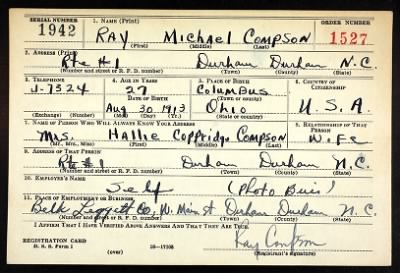 SERIAL NUMBER 1. NAME (Print) ORDER NUMBER
1942 RAY Michael Compson 1527
(First) (Middle) (Last)
2. ADDRESS (Print)
Rte #1 Durham Durham N.C.
(Number and street or R. F. D. number) (Town) (County) (State)
3. TELEPHONE 4. AGE IN YEARS 5. PLACE OF BIRTH 6. COUNTRY OF CITIZENSHIP
J-7524 27 Columbus
DATE OF BIRTH (Town or county)
Aug 30 1913 Ohio U.S.A.
(Exchange) (Number) (Mo.) (Day) (Yr.) (State or country)
7. NAME OF PERSON WHO WILL ALWAYS KNOW YOUR ADDRESS 8. RELATIONSHIP OF THAT PERSON
Mrs. Hallie Coppridge Compson Wife
(Mr., Mrs., Miss) (First) (Middle) (Last)
9. ADDRESS OF THAT PERSON
Rte #1 Durham Durham N.C.
(Number and street or R. F. D. number) (Town) (County) (State)
10. EMPLOYER'S NAME
Self (Photo Busi)
11. PLACE OF EMPLOYMENT OR BUSINESS
Belk Leggett Co, W. Main St Durham Durham N.C.
(Number and street or R. F. D. number) (Town) (County) (State)
I AFFIRM THAT I HAVE VERIFIED ABOVE ANSWERS AND THAT THEY ARE TRUE.
Ray Compson
REGISTRATION CARD
D. S. S. Form 1 (over) 16-17105 (Registrant's signature)